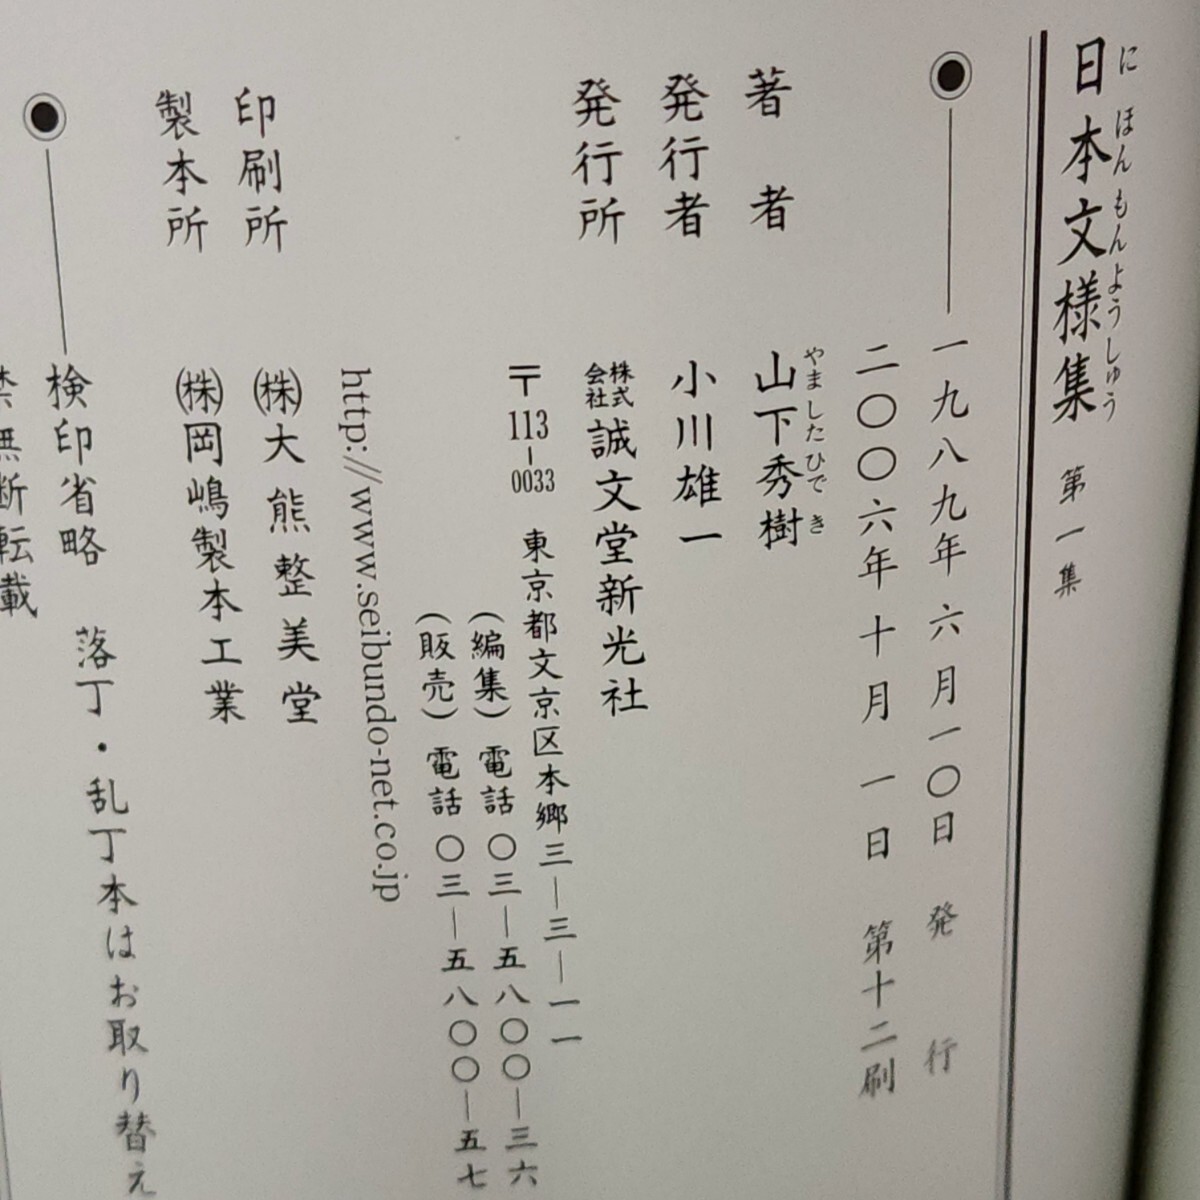 日本文様集 第一集
にほんもんようしゅう
一九八九年六月一〇日 発行
二〇〇六年十月 一日 第十二刷
著者 山下秀樹
やましたひでき
発行者 小川雄一
発行所 株式会社 誠文堂新光社
〒113-0033 東京都文京区本郷三―三―一一
(編集) 電話 〇三―五八〇〇―三六
(販売) 電話 〇三―五八〇〇―五七
http://www.seibundo-net.co.jp
印刷所 ㈱大熊整美堂
製本所 ㈱岡嶋製本工業
検印省略 落丁・乱丁本はお取り替え
禁無断転載